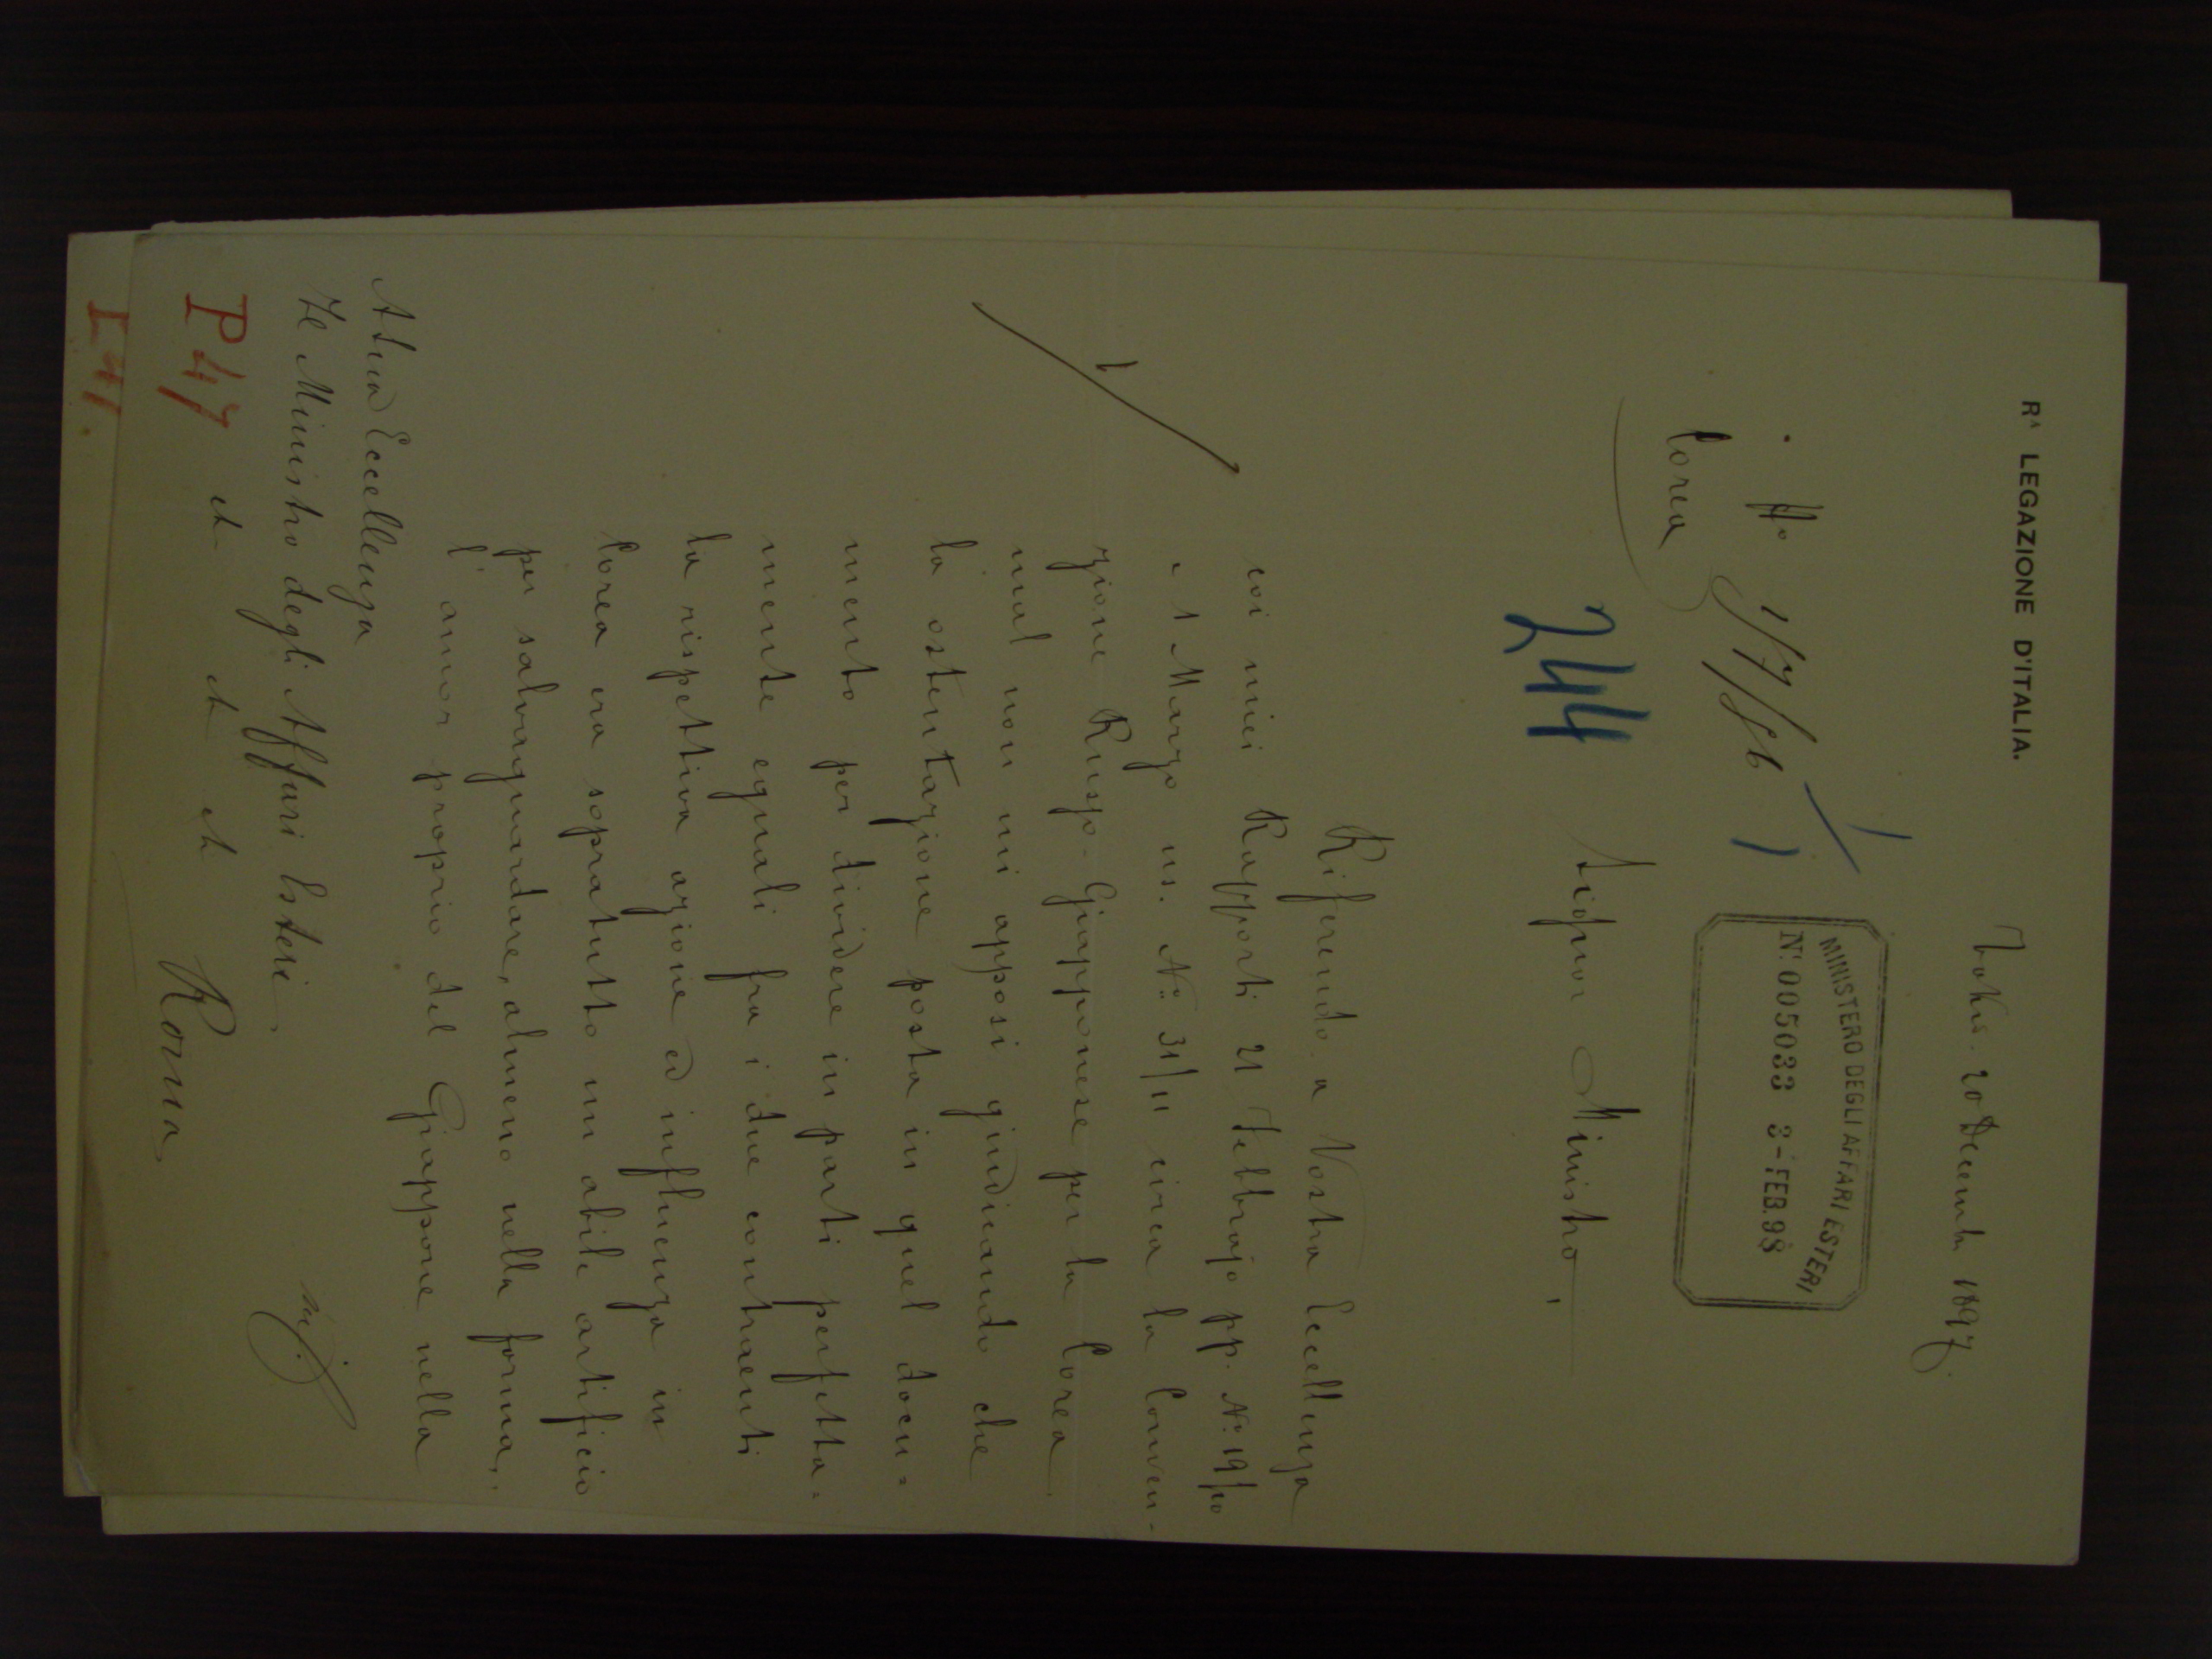 Rᴬ LEGAZIONE D'ITALIA.
Tokio. 20 Decembre 1897.
MINISTERO DEGLI AFFARI ESTERI
N. 005033 3-FEB.98
Corea
244
Signor Ministro,
Riferendo a Vostra Eccellenza
coi miei Rapporti 21 Febbrajo pp. Nº 19/10
e 1 Marzo us. Nº 31/11 circa la Conven-
zione Russo-Giapponese per la Corea
mal non mi apposi giudicando che
la ostentazione posta in quel docu=
mento per dividere in parti perfetta=
mente eguali fra i due contraenti
la rispettiva azione ed influenza in
Corea era sopratutto un abile artificio
per salvaguardare, almeno nella forma,
l'amor proprio del Giappone nella
A Sua Eccellenza
Il Ministro degli Affari Esteri
et et et Roma
P 47